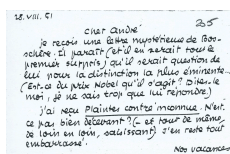 28.VIII.51
205
Cher André
je reçois une lettre mystérieuse de Bos-
schère. Il paraît (et il en serait tout le
premier surpris) qu'il serait question de
lui pour la distinction la plus éminente...
(Est-ce du prix Nobel qu'il s'agit? Dites-le
moi, je ne sais trop que lui répondre)
j'ai reçu Plaintes contre inconnu. N'est-
ce pas bien décevant? (- et tout de même,
de loin en loin, saisissant) j'en reste tout
embarrassé.
Nos vacances